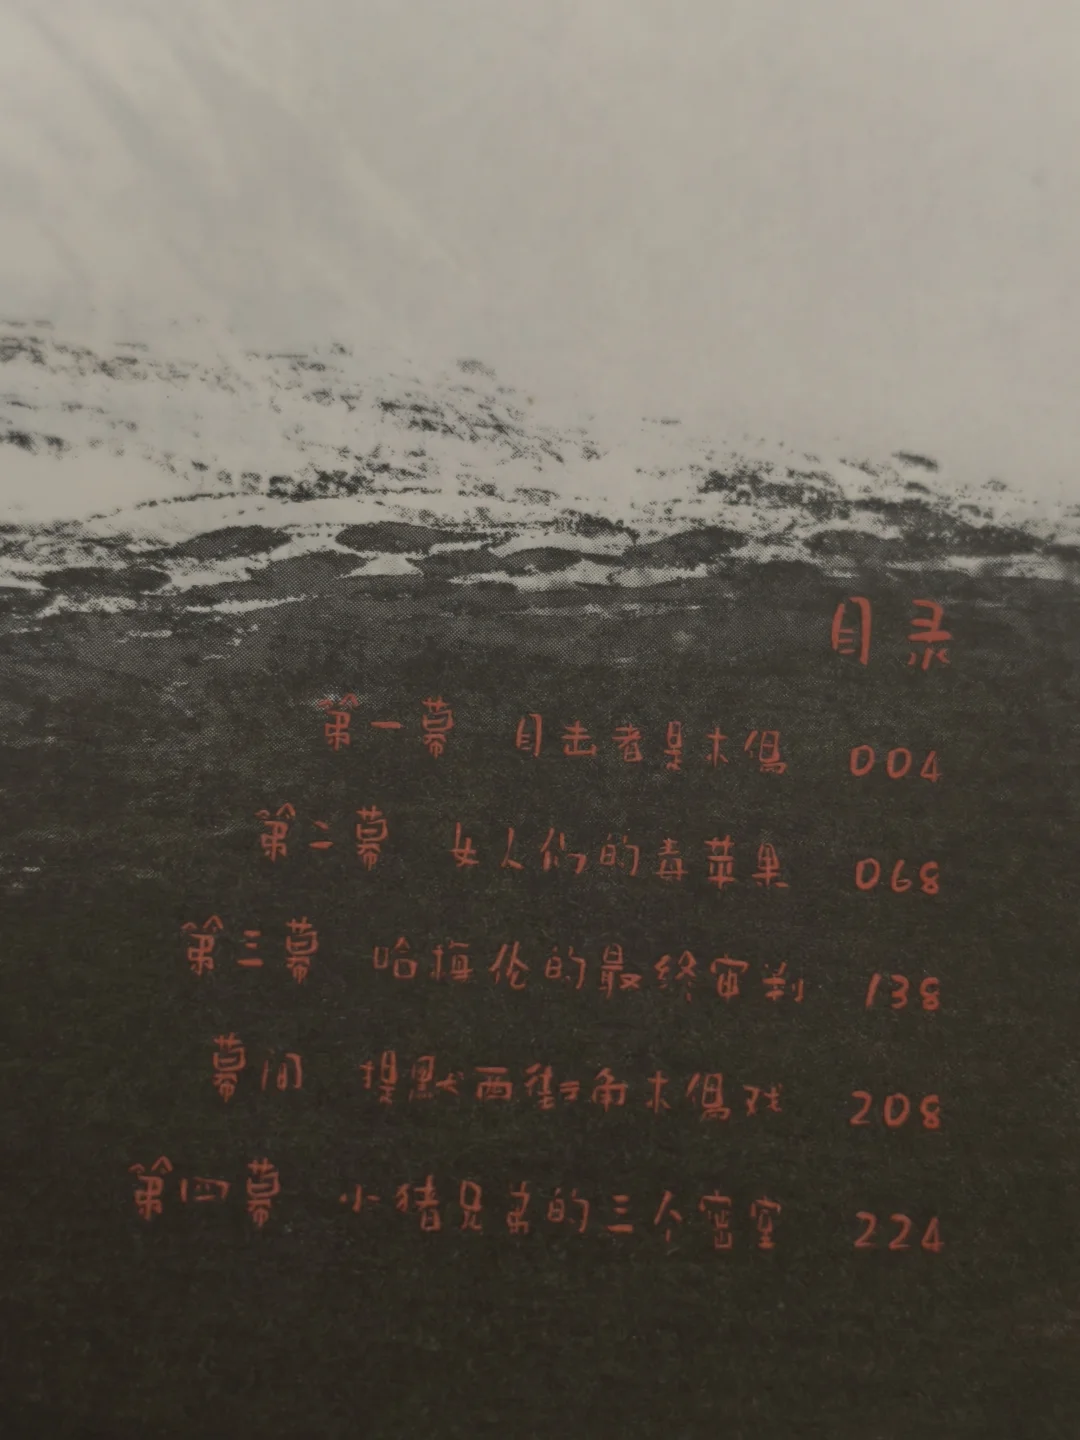 目录
第一幕 目击者是木偶 004
第二幕 女人们的毒苹果 068
第三幕 哈梅伦的最终审判 138
幕间 提默西街角木偶戏 208
第四幕 小猪兄弟的三个密室 224